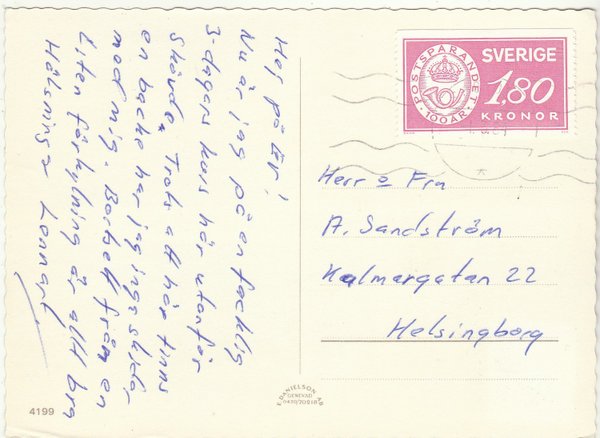 Hej på Er!
Nu är jag på en facklig
3-dagars kurs här utanför
Skövde. Trots att här finns
en backe har jag inga skidor
med mig. Bortsett från en
liten förkylning är allt bra
Hälsningar Lennart
POSTSPARANDET 100 ÅR
SVERIGE
1,80
KRONOR
Herr o Fru
A. Sandström
Kalmargatan 22
Helsingborg
E. DANIELSON AB
GENEVAD
4199